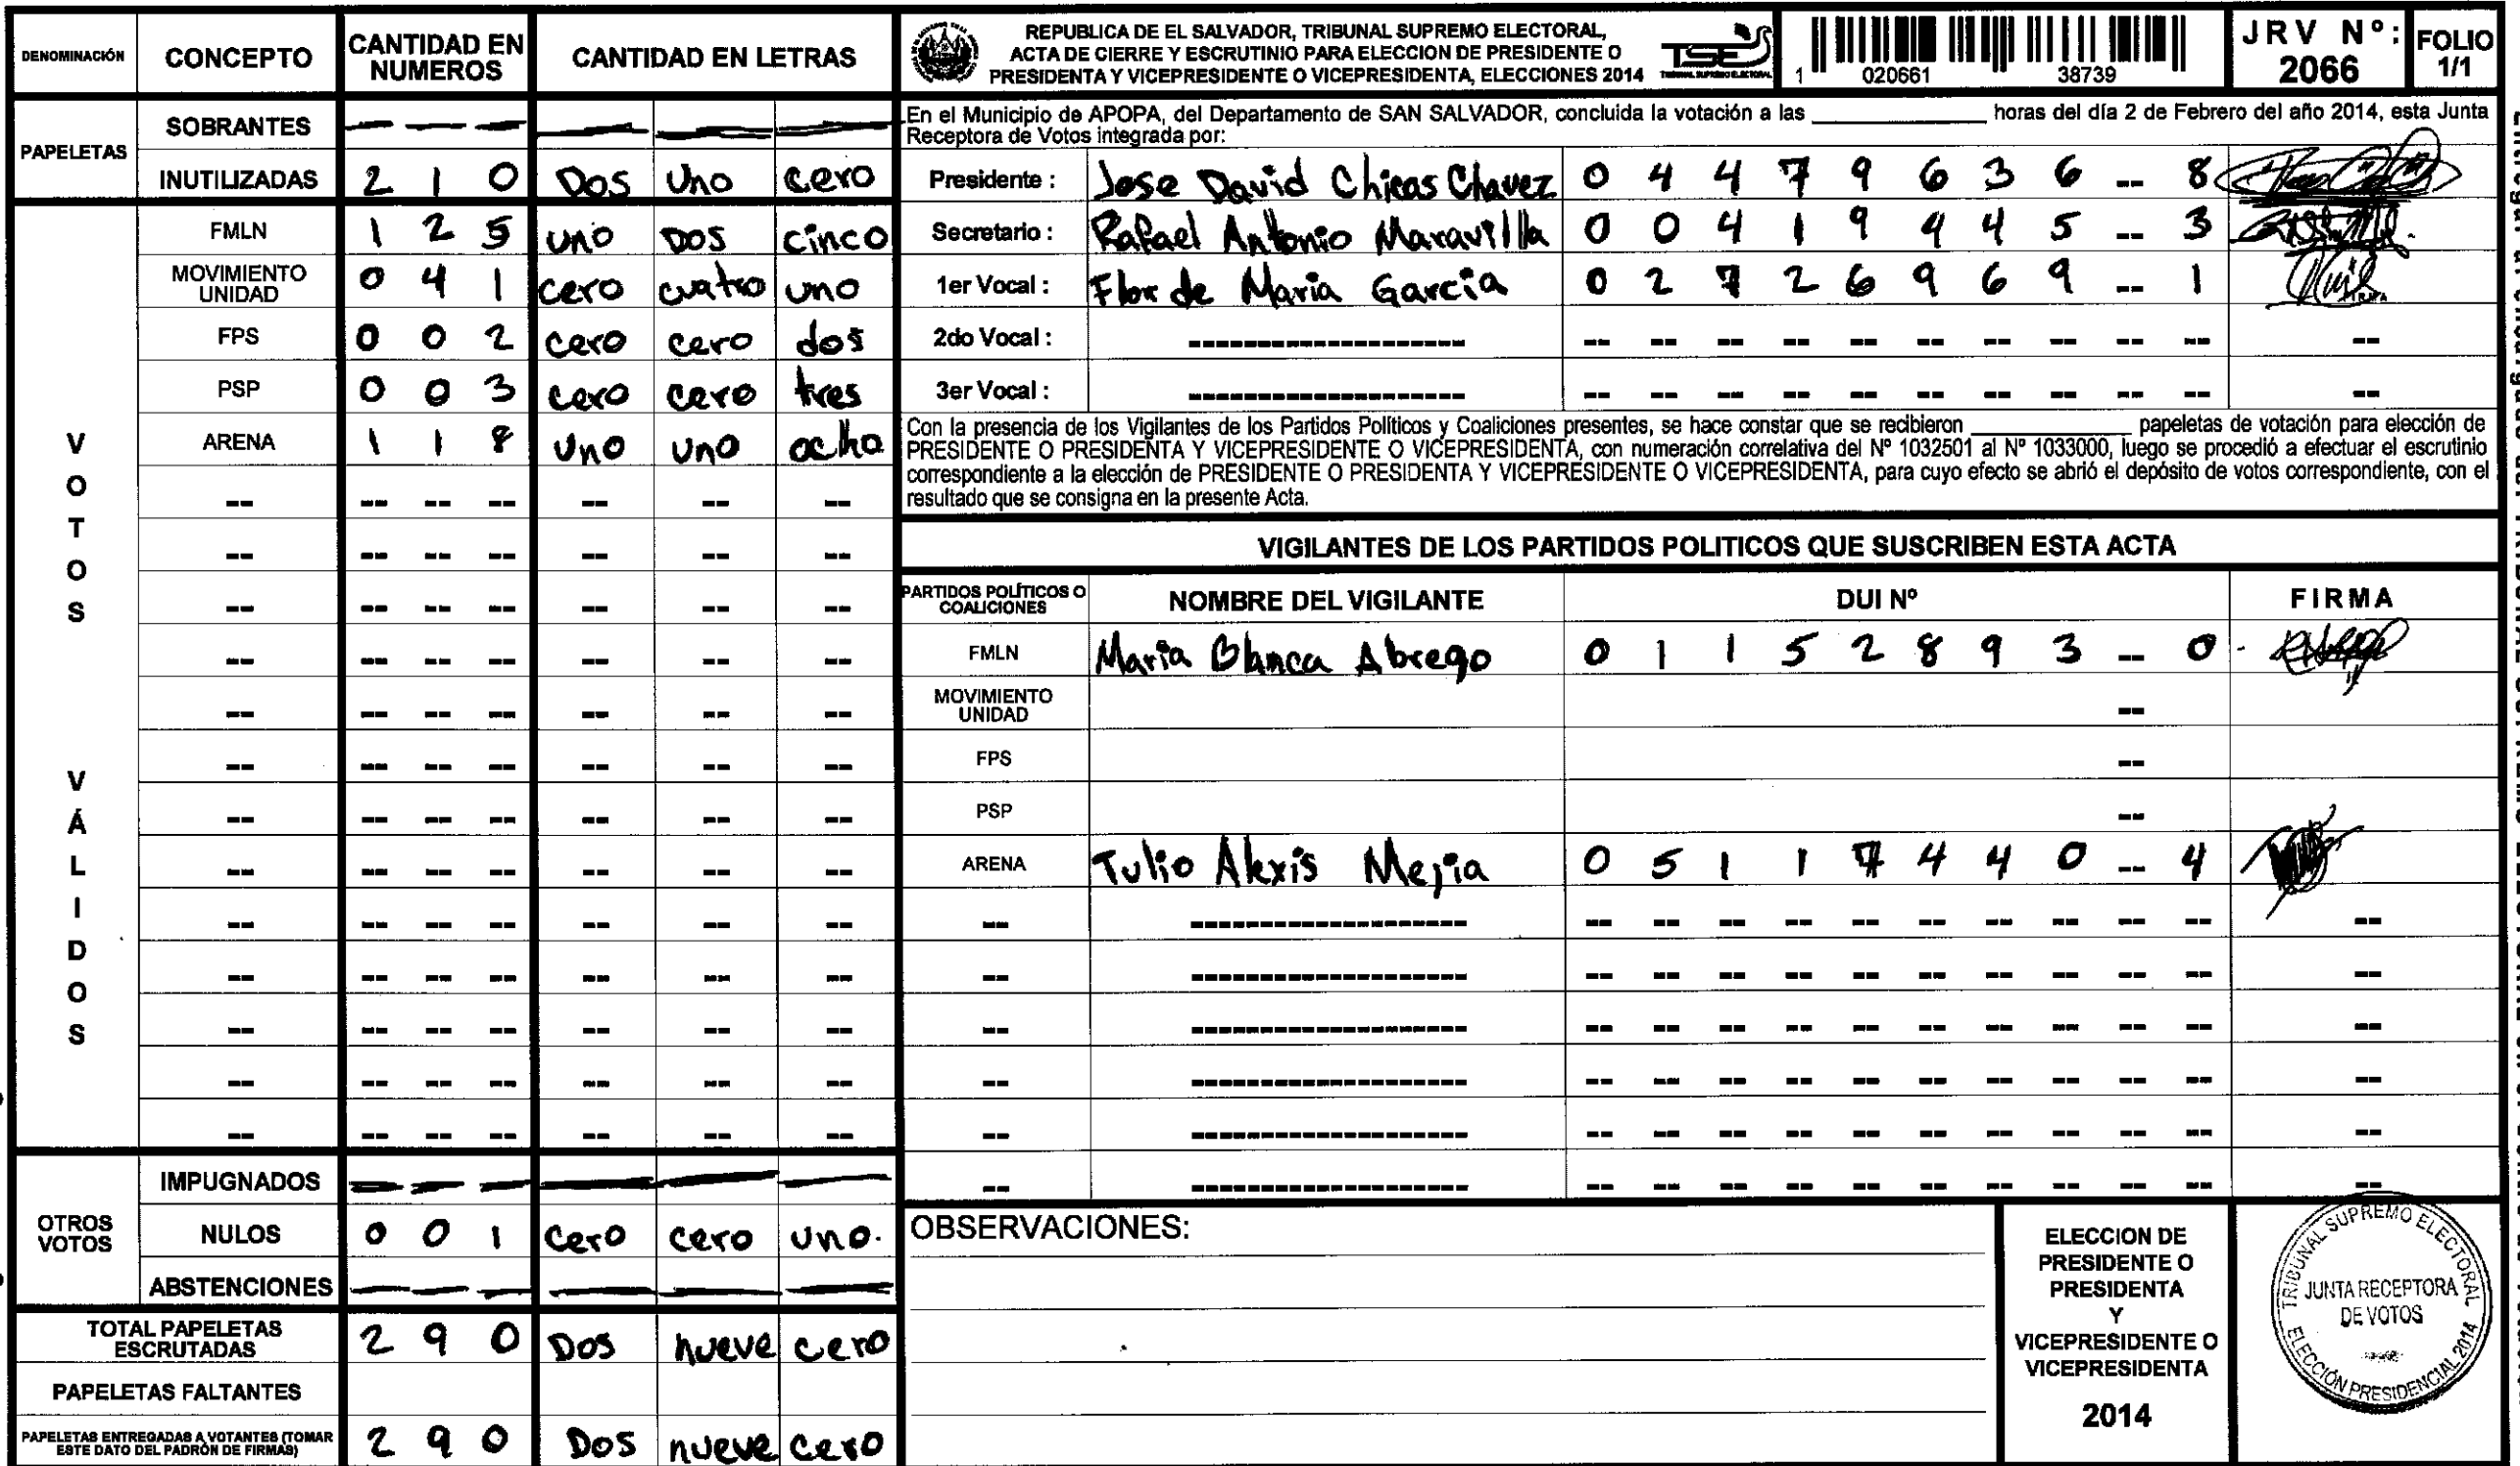 DENOMINACIÓN CONCEPTO CANTIDAD EN NUMEROS CANTIDAD EN LETRAS
PAPELETAS
SOBRANTES -- -- --
INUTILIZADAS 2 1 0 Dos Uno cero
VOTOS VÁLIDOS
FMLN 1 2 5 uno Dos cinco
MOVIMIENTO UNIDAD 0 4 1 cero cuatro uno
FPS 0 0 2 cero cero dos
PSP 0 0 3 cero cero tres
ARENA 1 1 8 uno uno ocho
OTROS VOTOS
IMPUGNADOS -- -- --
NULOS 0 0 1 cero cero uno.
ABSTENCIONES -- -- --
TOTAL PAPELETAS ESCRUTADAS 2 9 0 Dos nueve cero
PAPELETAS FALTANTES
PAPELETAS ENTREGADAS A VOTANTES (TOMAR ESTE DATO DEL PADRÓN DE FIRMAS) 2 9 0 Dos nueve cero
REPUBLICA DE EL SALVADOR, TRIBUNAL SUPREMO ELECTORAL,
ACTA DE CIERRE Y ESCRUTINIO PARA ELECCION DE PRESIDENTE O
PRESIDENTA Y VICEPRESIDENTE O VICEPRESIDENTA, ELECCIONES 2014
TSE
TRIBUNAL SUPREMO ELECTORAL
1 020661 38739
JRV Nº: 2066
FOLIO 1/1
En el Municipio de APOPA, del Departamento de SAN SALVADOR, concluida la votación a las ____ horas del día 2 de Febrero del año 2014, esta Junta
Receptora de Votos integrada por:
Presidente : Jose David Chicas Chavez 0 4 4 7 9 6 3 6 -- 8
Secretario : Rafael Antonio Maravilla 0 0 4 1 9 4 4 5 -- 3
1er Vocal : Flor de Maria Garcia 0 2 7 2 6 9 6 9 -- 1
2do Vocal :
3er Vocal :
Con la presencia de los Vigilantes de los Partidos Políticos y Coaliciones presentes, se hace constar que se recibieron ____ papeletas de votación para elección de
PRESIDENTE O PRESIDENTA Y VICEPRESIDENTE O VICEPRESIDENTA, con numeración correlativa del Nº 1032501 al Nº 1033000, luego se procedió a efectuar el escrutinio
correspondiente a la elección de PRESIDENTE O PRESIDENTA Y VICEPRESIDENTE O VICEPRESIDENTA, para cuyo efecto se abrió el depósito de votos correspondiente, con el
resultado que se consigna en la presente Acta.
VIGILANTES DE LOS PARTIDOS POLITICOS QUE SUSCRIBEN ESTA ACTA
PARTIDOS POLÍTICOS O COALICIONES NOMBRE DEL VIGILANTE DUI Nº FIRMA
FMLN Maria Blanca Abrego 0 1 1 5 2 8 9 3 -- 0
MOVIMIENTO UNIDAD --
FPS --
PSP --
ARENA Tulio Alexis Mejia 0 5 1 1 7 4 4 0 -- 4
OBSERVACIONES:
ELECCION DE
PRESIDENTE O
PRESIDENTA
Y
VICEPRESIDENTE O
VICEPRESIDENTA
2014
TRIBUNAL SUPREMO ELECTORAL
JUNTA RECEPTORA
DE VOTOS
ELECCIÓN PRESIDENCIAL 2014